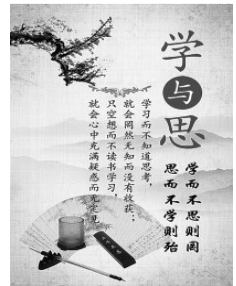 学与思
学而不思则罔
思而不学则殆
学习而不知道思考，
就会罔然无知而没有收获；
只空想而不读书学习，
就会心中充满疑惑而无定见